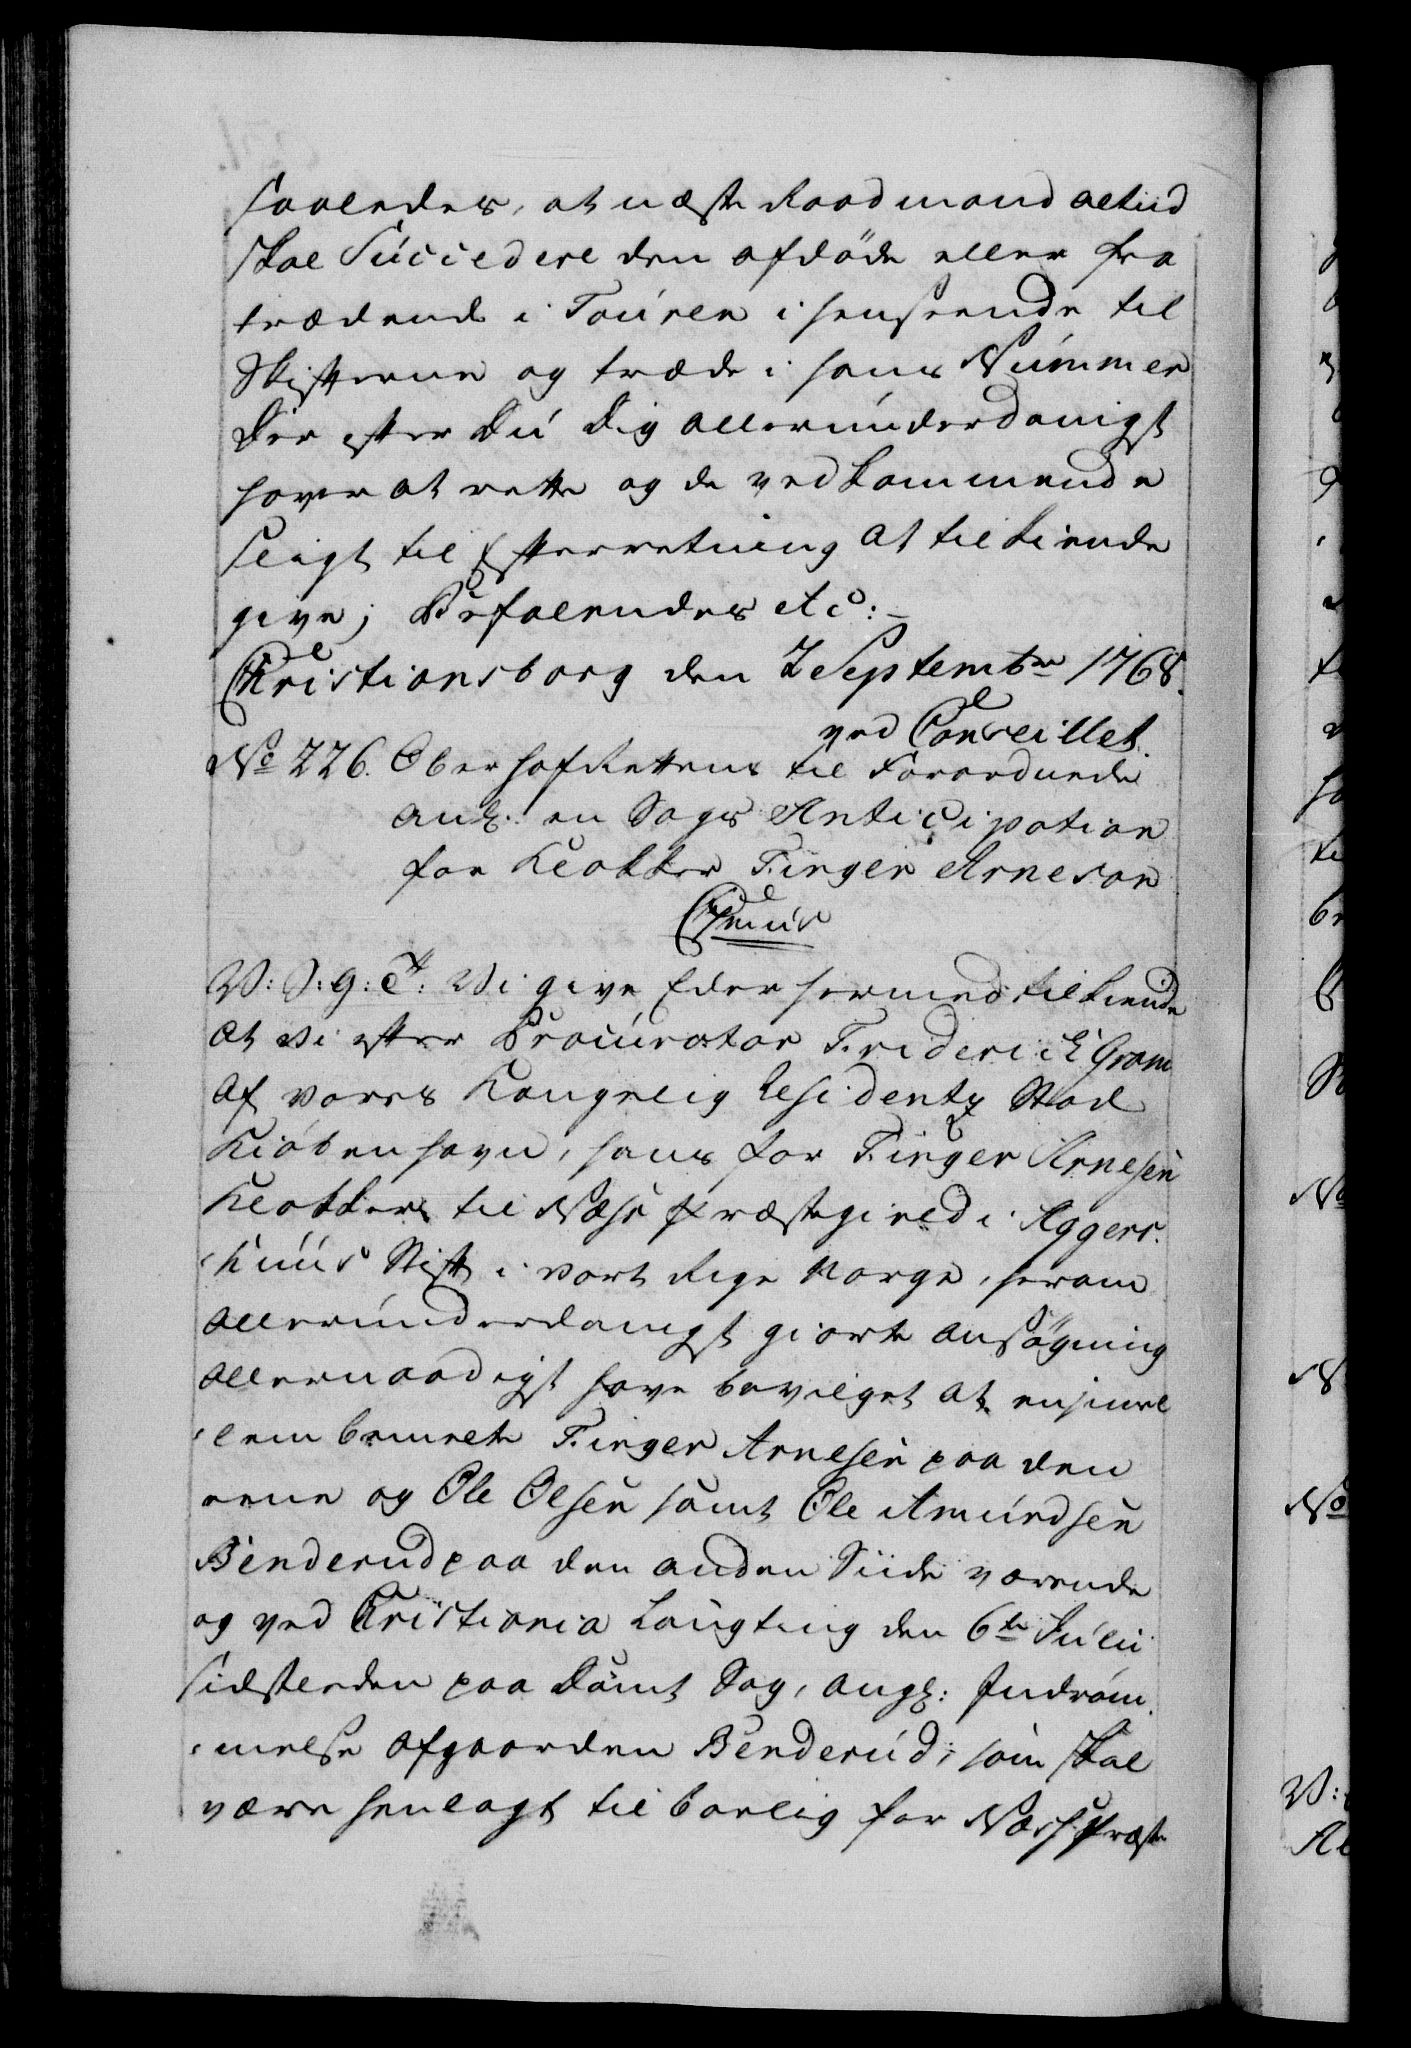 saaledes, at næste Raadmand altiid
skal Succedere den afdöde eller fra
trædende i Touren i henseende til
Skifterne og træde i hans Nummer
Der efter Du Dig allerunderdanigst
haver at rette og de vedkommende
sligt til Efterretning at tilkiende
give; Befalendes etc:
Christiansborg den 2 Septembr 1768.
ved Conseillet.
No 226. Oberhofrettens til Forordnede
ang: en Sags Anticipation
for Klokker Finger Arneson
C. 7mus
V: S: g: Ct: Vi give Eder hermed tilkiende
at vi efter Procurator Friderich Gram
af vores Kongelig Residentz Stad
Kiöbenhavn, hans for Finger Arnesen
Klokker til Næss Præstegield i Aggers.
huus Stift i vort Rige Norge, herom
allerunderdanigst giorte ansögning
allernaadigst have bevilget at en imel
lem bemelte Finger Arnesen paa den
eene og Ole Olsen samt Ole Amundsen
Benderud paa den anden Siide værende
og ved Christiania Laugting den 6te Julii
sidstleden paa Dömt Sag, ang: Indröm.
melse af gaarden Benderud, som skal
være henlagt til bolig for Næss Præste